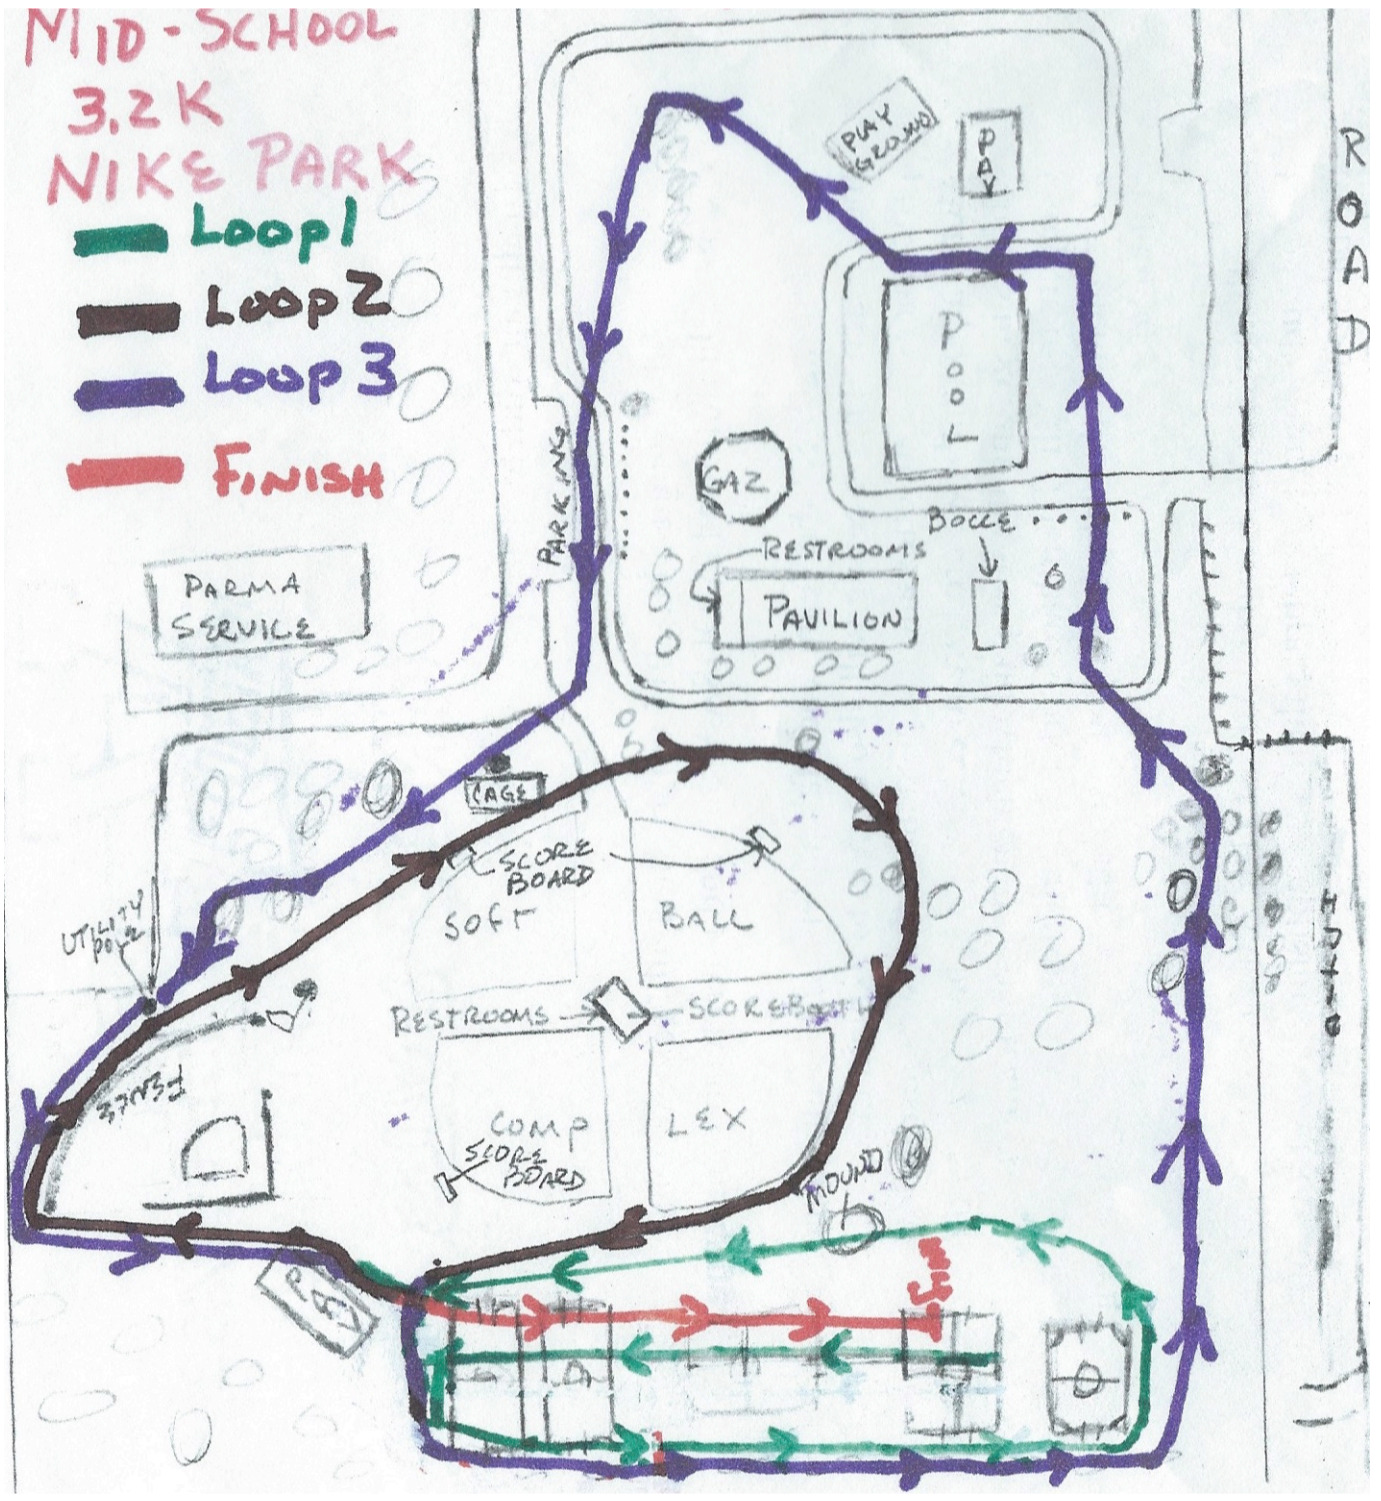 MID-SCHOOL
3.2K
NIKE PARK
Loop1
Loop2
Loop3
FINISH
PLAY
GROUND
PAV
ROAD
POOL
GAZ
PARKING
BOCCE
RESTROOMS
PAVILION
PARMA
SERVICE
CAGE
SCORE
BOARD
SOFT
BALL
UTILITY
POLE
RESTROOMS
FENCE
COMP
LEX
SCORE
BOARD
MOUND
PAV